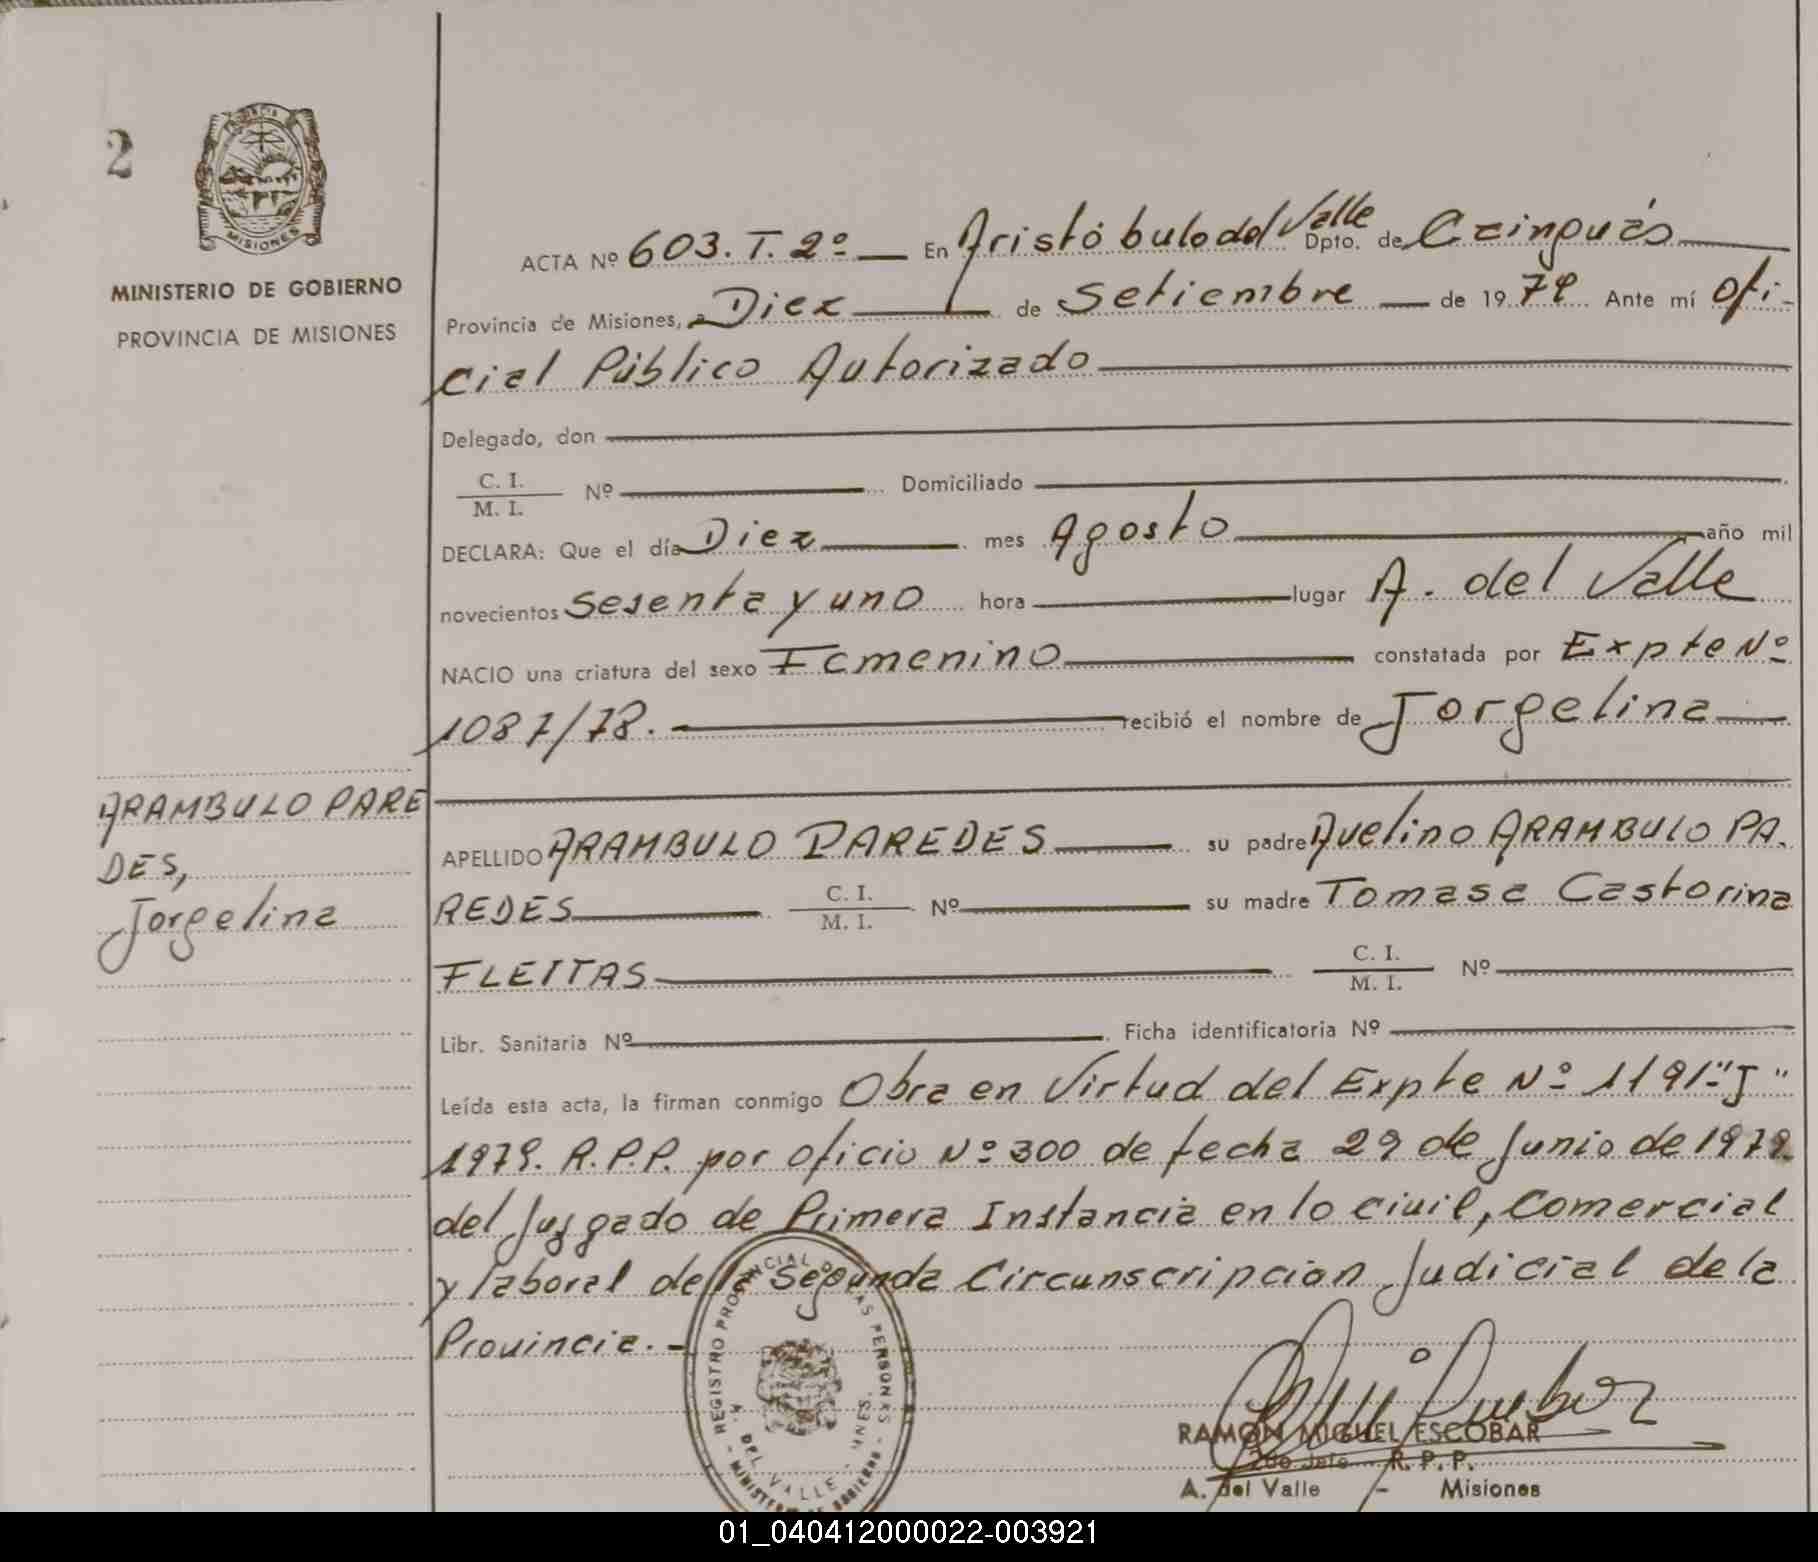 2
MISIONES
MINISTERIO DE GOBIERNO
PROVINCIA DE MISIONES
ACTA Nº 603. T. 2º — En Aristóbulo del Valle Dpto. de Cainguás
Provincia de Misiones, a Diez de Setiembre de 1979 Ante mí Ofi-
cial Público Autorizado
Delegado, don
C. I. / M. I. Nº Domiciliado
DECLARA: Que el día Diez mes Agosto año mil
novecientos sesenta y uno hora lugar A. del Valle
NACIO una criatura del sexo Femenino constatada por Expte Nº
1087/78. recibió el nombre de Jorgelina
ARAMBULO PARE
DES,
Jorgelina
APELLIDO ARAMBULO PAREDES su padre Avelino ARAMBULO PA.
REDES C. I. / M. I. Nº su madre Tomasa Castorina
FLEITAS C. I. / M. I. Nº
Libr. Sanitaria Nº Ficha identificatoria Nº
Leída esta acta, la firman conmigo Obra en Virtud del Expte Nº 1191-"J"
1979. R.P.P. por oficio Nº 300 de fecha 29 de Junio de 1979.
del Juzgado de Primera Instancia en lo civil, Comercial
y laboral de la Segunda Circunscripcion Judicial de la
Provincia.-
REGISTRO PROVINCIAL DE LAS PERSONAS
A. DEL VALLE - MNES.
MINISTERIO DE GOBIERNO
RAMON MIGUEL ESCOBAR
2do Jefe R. P. P.
A. del Valle - Misiones
01_040412000022-003921